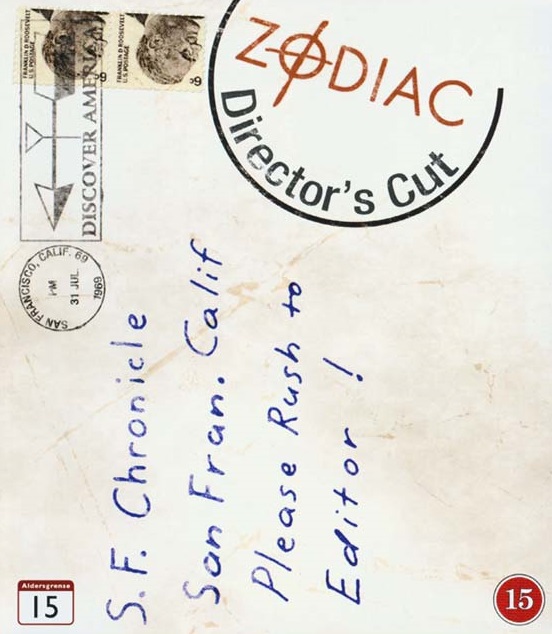 FRANKLIN D. ROOSEVELT
U.S. POSTAGE
6¢
FRANKLIN D. ROOSEVELT
U.S. POSTAGE
6¢
DISCOVER AMERICA
SAN FRANCISCO, CALIF. 69
PM
31 JUL
1969
ZODIAC
Director's Cut
S.F. Chronicle
San Fran. Calif
Please Rush to
Editor!
Aldersgrense
15
15